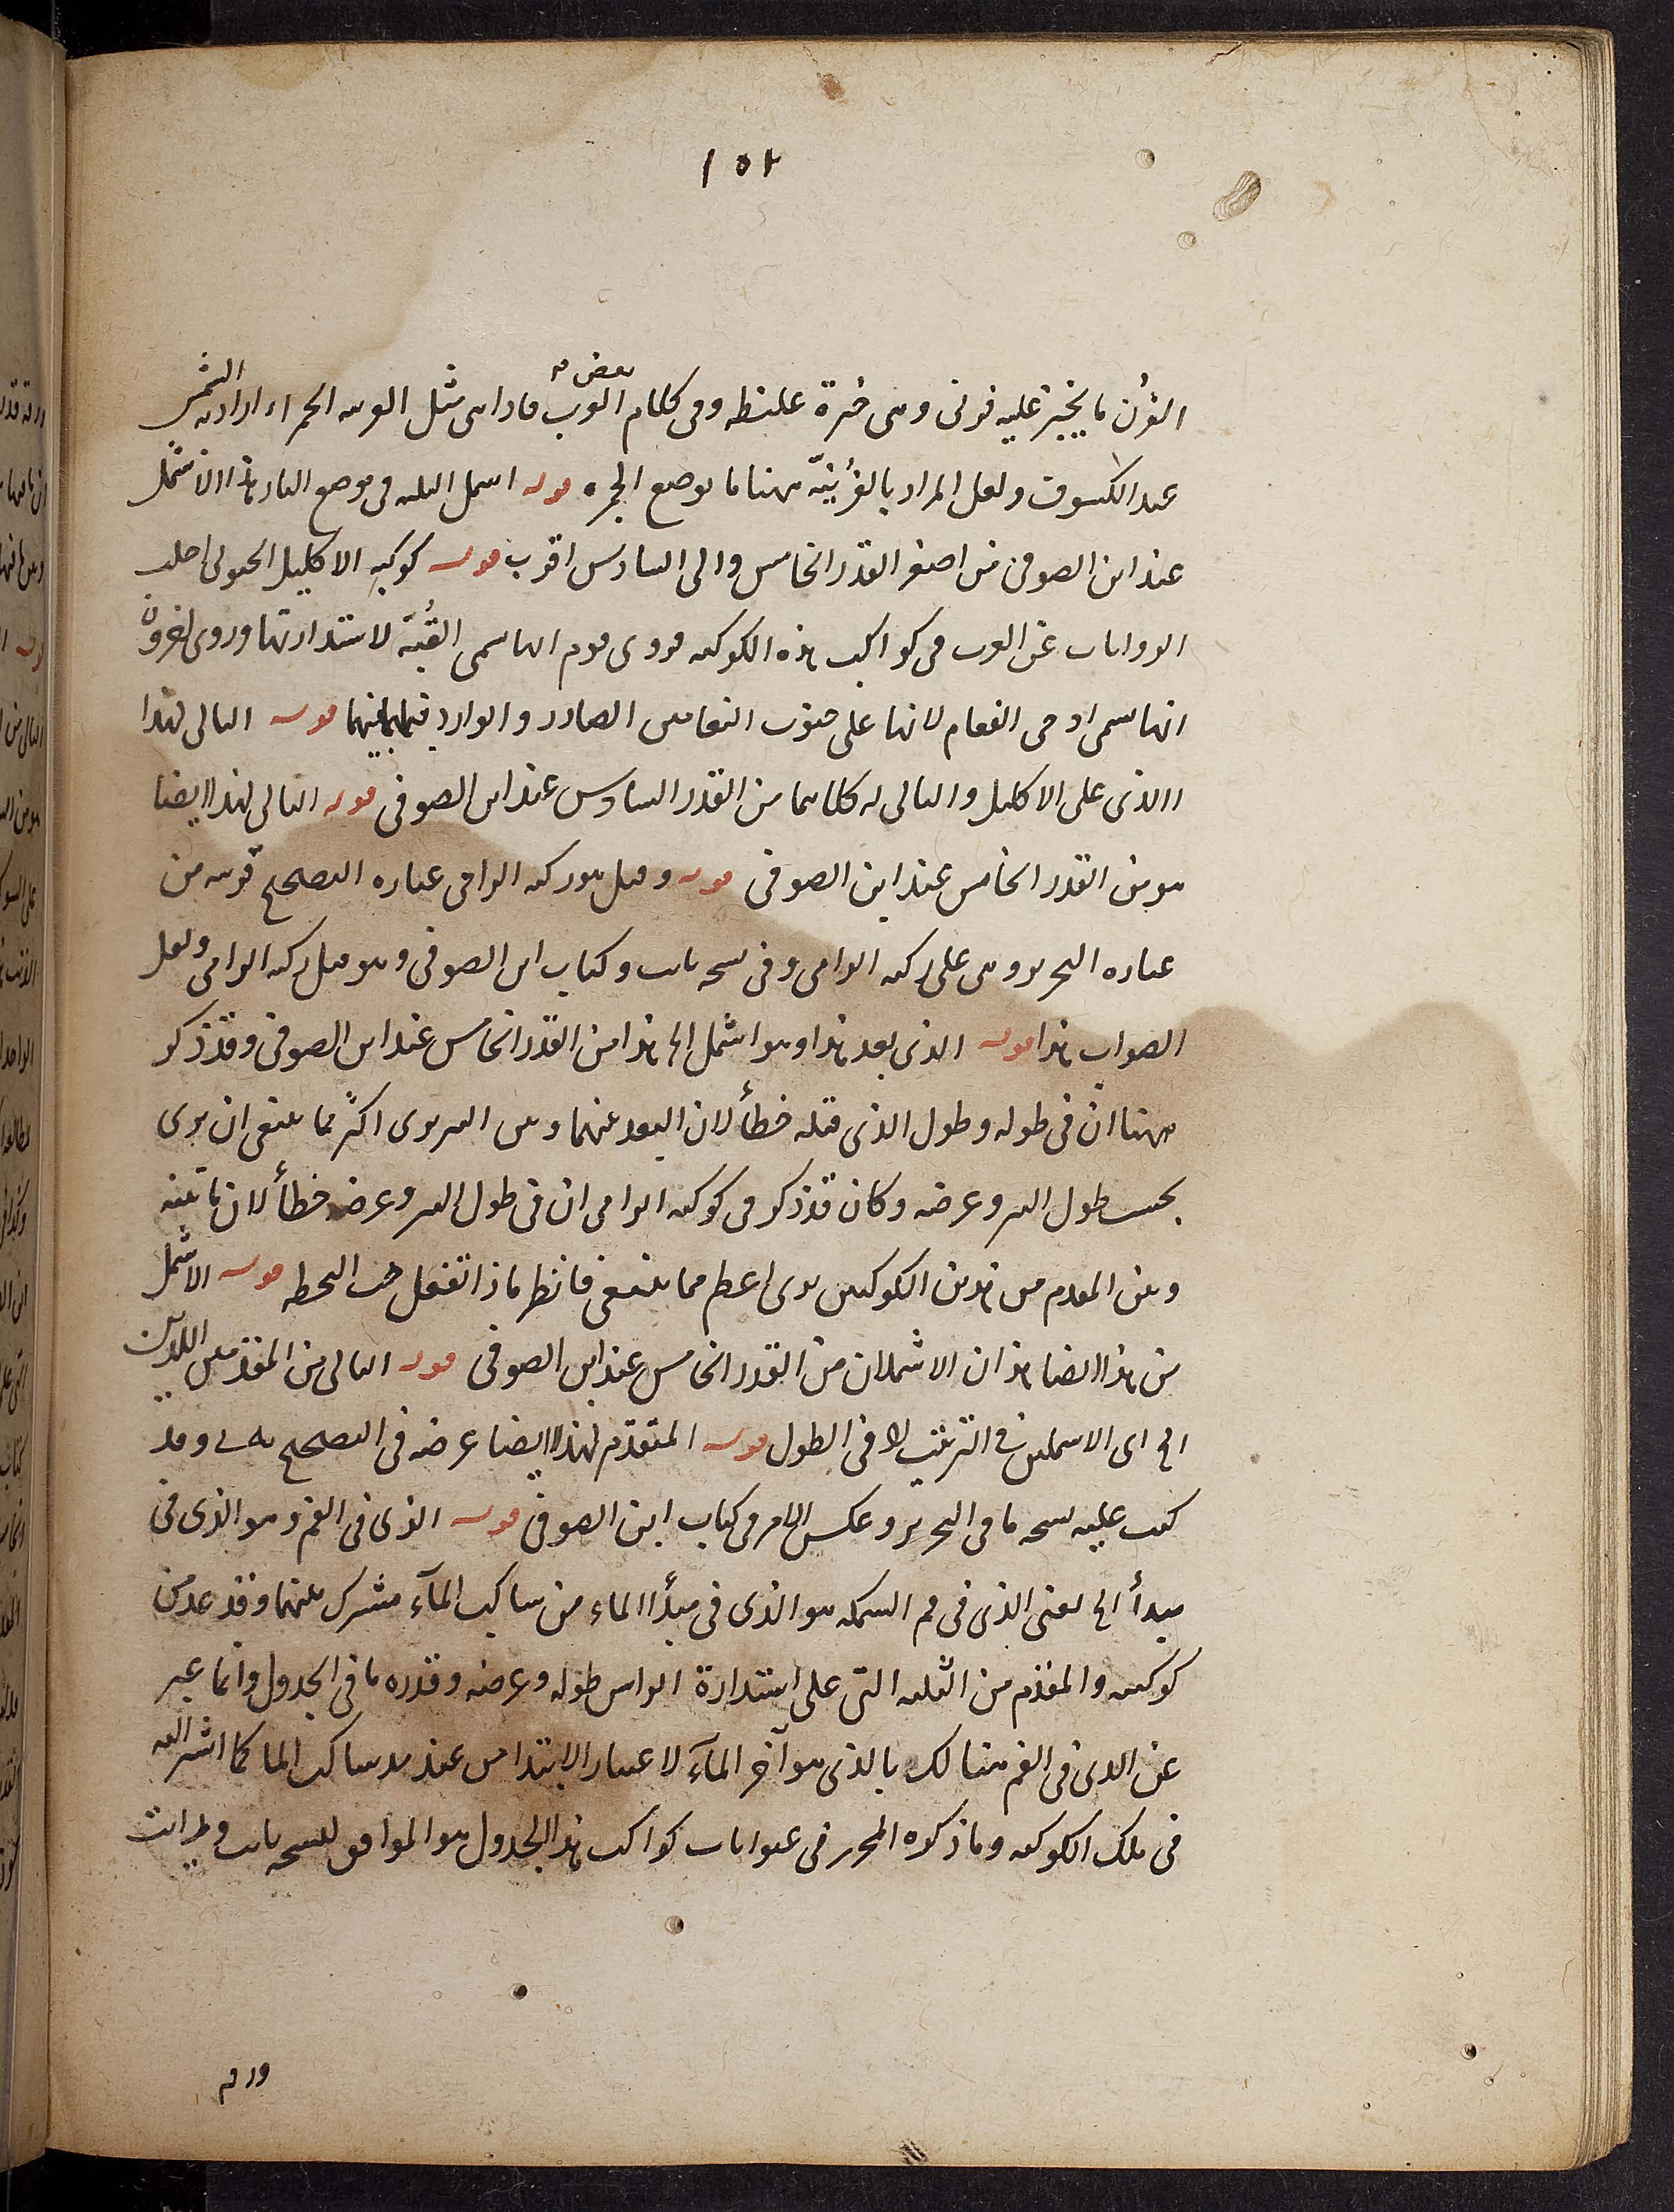 ١٥٢
الفرن ما يخبز عليه فرنى وهى خبزة غليظه وفى كلام بعض العرب فاذا هى مثل الفرنيه الحمراء اراد به الشمس
عند الكسوف ولعل المراد بالفُرنِيّة ههنا ما يوضع الجمره قوله اشمل الثلثه فى موضع النار هذا الاشمل
عند ابن الصوفى من اصغر القدر الخامس والى السادس اقرب قوله كوكبه الاكليل الجنوبى اختلف
الروايات عن العرب فى كواكب هذه الكوكبه فروى قوم انها سمى القُبّة لاستدارتها وروى اخرون
انها سمى ادحى النعام لانها على جنوب النعامين الصادر والوارد فيما بينهما قوله التالى لهذا
الذى على الاكليل والتالى له كلاهما من القدر السادس عند ابن الصوفى قوله التالى لهذا ايضا
هو من القدر الخامس عند ابن الصوفى قوله وقبل هو ركبه الرامى عباره التصحيح قريبه من
عباره التحرير وهى على ركبه الرامى وفى نسخه ثابت وكتاب ابن الصوفى وهو قبل ركبه الرامى ولعل
الصواب هذا قوله الذى بعد هذا وهو اشمل الخ هذا من القدر الخامس عند ابن الصوفى وقد ذكر
ههنا ان فى طوله وطول الذى قبله خطأ لان البعد بينهما وبين النير يرى اكثر مما ينبغى ان يرى
بحسب طول النير وعرضه وكان قد ذكر فى كوكبه الرامى ان فى طول النير وعرضه خطأ لان ما بينه
وبين المقدم من هذين الكوكبين يرى اعظم مما ينبغى فانظر ماذا تفعل قوله الاشمل
من هذا ايضا هذان الاشملان من القدر الخامس عند ابن الصوفى قوله التالى من المقدمين اللذين
الخ اى الاشملين فى الترتيب لا فى الطول قوله المتقدم لهذا ايضا عرضه فى التصحيح وقد
كتب عليه نسخه ما فى التحرير وعكس الامر فى كتاب ابن الصوفى قوله الذى فى الفم وهو الذى فى
مبدأ الخ يعنى الذى فى فم السمكه هو الذى فى مبدأ الماء من ساكب المآء مشترك بينهما وقد عد من
كوكبته والمقدم من الثلثه التى على استدارة الراس طوله وعرضه وقدره ما فى الجدول وانما عبر
عن الذى فى الفم هنالك بالذى هو آخر المآء لاعتبار الابتدا من عند يد ساكب الما كما اشير اليه
فى تلك الكوكبه وما ذكره المحرر فى عنوانات كواكب هذا الجدول هو الموافق لنسخه ثابت ورايت